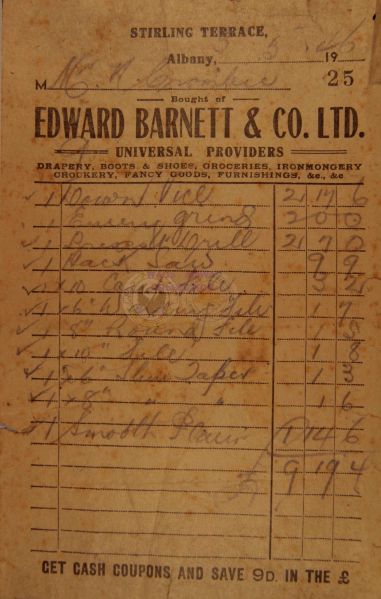 STIRLING TERRACE,
Albany, 19 46
M
25
Bought of
EDWARD BARNETT & CO. LTD.
UNIVERSAL PROVIDERS
DRAPERY, BOOTS & SHOES, GROCERIES, IRONMONGERY
CROCKERY, FANCY GOODS, FURNISHINGS, &c., &c
1 Vice 2 17 6
1 Emery Grind 2 0 0
1 Drill 2 7 0
1 Hack Saw 9 9
1 10" File 3
1 x 6" File 1 7
1 8" Round File 1
1 x 10" File 1 8
1 x 6" Slim Taper 1
1 x 8" " " 1 6
1 Smooth Plane 1 14 6
9 19 4
GET CASH COUPONS AND SAVE 9D. IN THE £